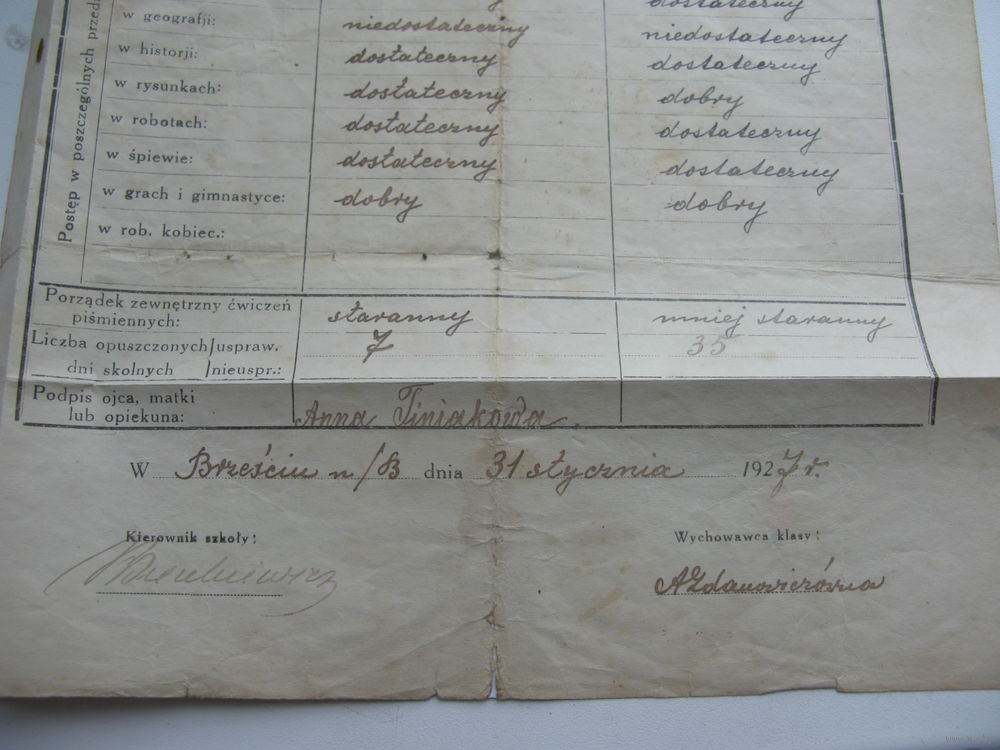 dostateczny
w geografji: niedostateczny niedostateczny
w historji: dostateczny dostateczny
w rysunkach: dostateczny dobry
w robotach: dostateczny dostateczny
w śpiewie: dostateczny dostateczny
w grach i gimnastyce: dobry dobry
w rob. kobiec.:
Postęp w poszczególnych przed
Porządek zewnętrzny ćwiczeń
piśmiennych: staranny mniej staranny
Liczba opuszczonych/uspraw. 7 35
dni skolnych /nieuspr.:
Podpis ojca, matki
lub opiekuna: Anna Tiniakowa.
W Brześciu n/B dnia 31 stycznia 1927 r.
Kierownik szkoły: Wychowawca klasy:
AŻdanowiczówna